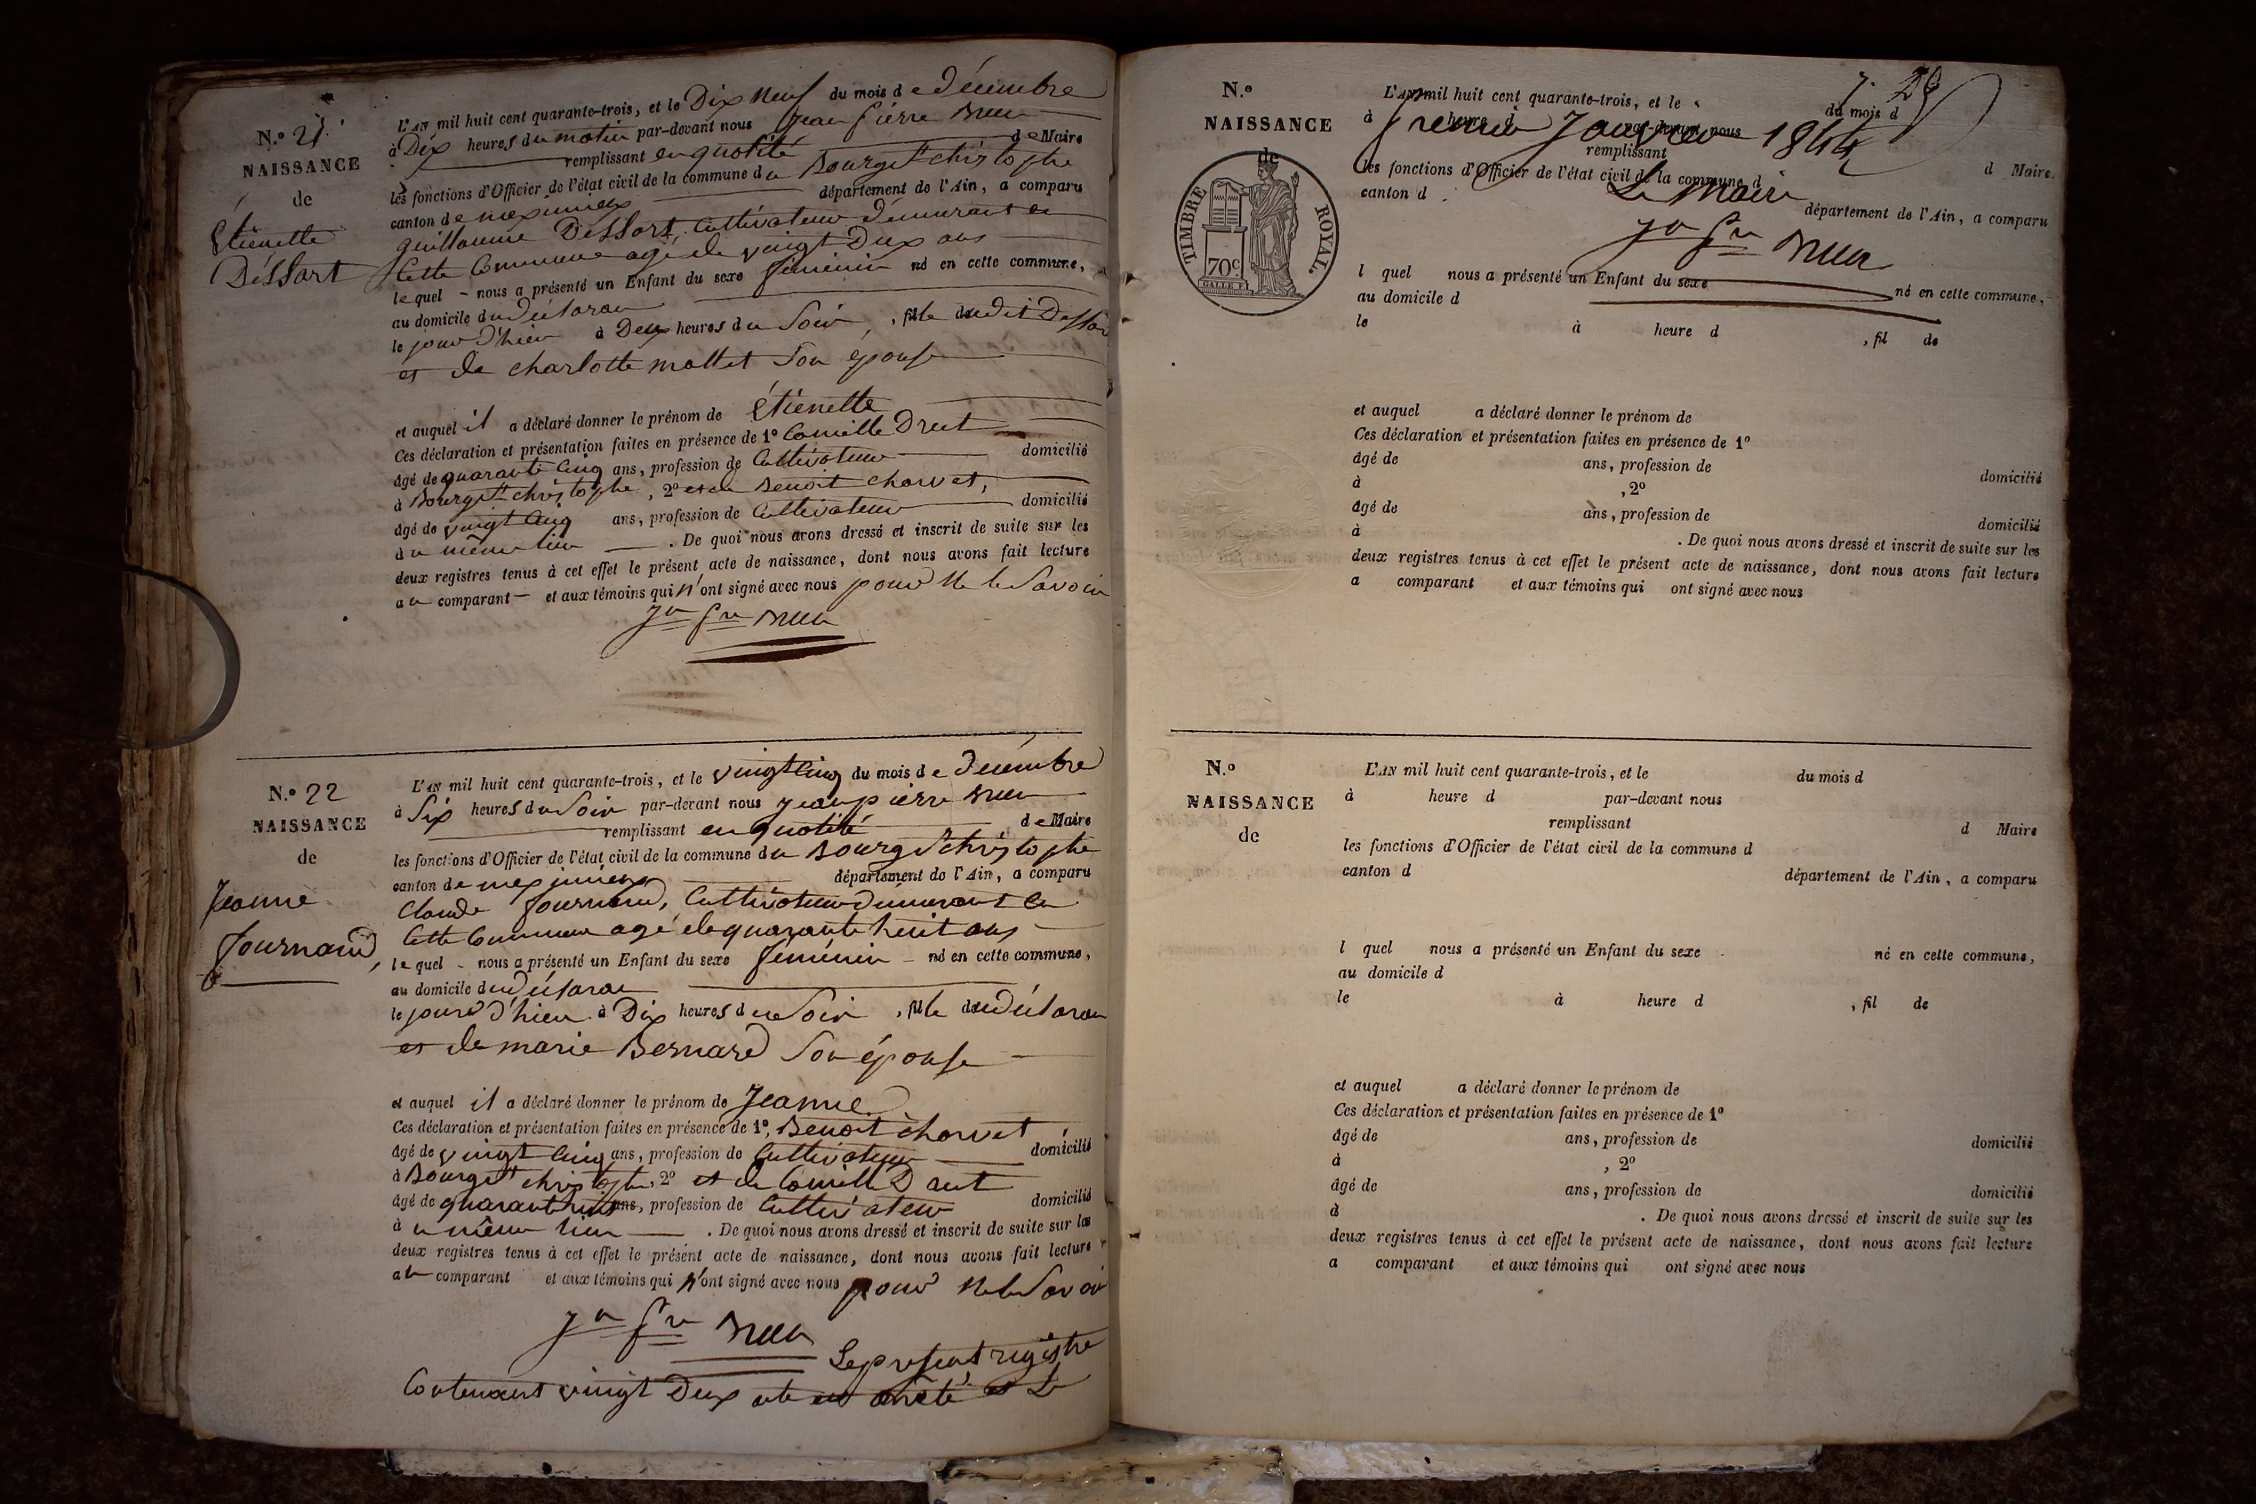 N.o 21.
NAISSANCE
de
Étienette
Dessart
L'AN mil huit cent quarante-trois, et le Dix neuf du mois de décembre
à Dix heures du matin par-devant nous Jean pierre
remplissant en qualité de Maire
les fonctions d'Officier de l'état civil de la commune du Bourg St christophe
canton de meximieux département de l'Ain, a comparu
guillaume Dessart, Cultivateur démurant en
Cette Commune agé de vingt Deux ans
lequel nous a présenté un Enfant du sexe féminin né en cette commune,
au domicile du
le jour d'hier à Deux heures du Soir, fille dudit Dessar
et de charlotte mollet Son épouse
et auquel il a déclaré donner le prénom de Étienette
Ces déclaration et présentation faites en présence de 1o Camille Dret
âgé de quarante Cinq ans, profession de Cultivateur domicilié
à Bourg St christophe, 2o et de Benoit charvet,
âgé de vingt Cinq ans, profession de Cultivateur domicilié
au même lieu . De quoi nous avons dressé et inscrit de suite sur les
deux registres tenus à cet effet le présent acte de naissance, dont nous avons fait lecture
au comparant et aux témoins qui n'ont signé avec nous pour ne le Savoir
Jn pre
N.o 22
NAISSANCE
de
Jeanne
Journaud,
L'AN mil huit cent quarante-trois, et le vingt Cinq du mois de décembre
à Six heures du Soir par-devant nous Jean pierre
remplissant en qualité de Maire
les fonctions d'Officier de l'état civil de la commune du Bourg St christophe
canton de meximieux département de l'Ain, a comparu
Claude Journaud, Cultivateur démurant en
Cette Commune agé de quarante huit ans
lequel nous a présenté un Enfant du sexe féminin né en cette commune,
au domicile du
le jour d'hier à Dix heures du Soir, fille du
et de marie Bernard Son épouse
et auquel il a déclaré donner le prénom de Jeanne
Ces déclaration et présentation faites en présence de 1o, Benoit charvet
âgé de vingt Cinq ans, profession de Cultivateur domicilié
à Bourg St christophe, 2o et de Camille Dret
âgé de quarante huit ans, profession de Cultivateur domicilié
à u même lieu . De quoi nous avons dressé et inscrit de suite sur les
deux registres tenus à cet effet le présent acte de naissance, dont nous avons fait lecture
au comparant et aux témoins qui n'ont signé avec nous pour ne le Savoir
Jn pre
Le présent registre
Contenant vingt Deux acte arreté et
N.o
NAISSANCE
de
TIMBRE ROYAL.
70c
L'AN mil huit cent quarante-trois, et le du mois d
à heure d par-devant nous
premier Janvier 1844
remplissant d Maire
les fonctions d'Officier de l'état civil de la commune d
Le Maire
canton d département de l'Ain, a comparu
Jn pre
l quel nous a présenté un Enfant du sexe né en cette commune,
au domicile d
le à heure d , fil de
et auquel a déclaré donner le prénom de
Ces déclaration et présentation faites en présence de 1o
âgé de ans, profession de domicilié
à , 2o
âgé de ans, profession de domicilié
à . De quoi nous avons dressé et inscrit de suite sur les
deux registres tenus à cet effet le présent acte de naissance, dont nous avons fait lecture
a comparant et aux témoins qui ont signé avec nous
N.o
NAISSANCE
de
L'AN mil huit cent quarante-trois, et le du mois d
à heure d par-devant nous
remplissant d Maire
les fonctions d'Officier de l'état civil de la commune d
canton d département de l'Ain, a comparu
l quel nous a présenté un Enfant du sexe né en cette commune,
au domicile d
le à heure d , fil de
et auquel a déclaré donner le prénom de
Ces déclaration et présentation faites en présence de 1o
âgé de ans, profession de domicilié
à , 2o
âgé de ans, profession de domicilié
à . De quoi nous avons dressé et inscrit de suite sur les
deux registres tenus à cet effet le présent acte de naissance, dont nous avons fait lecture
a comparant et aux témoins qui ont signé avec nous